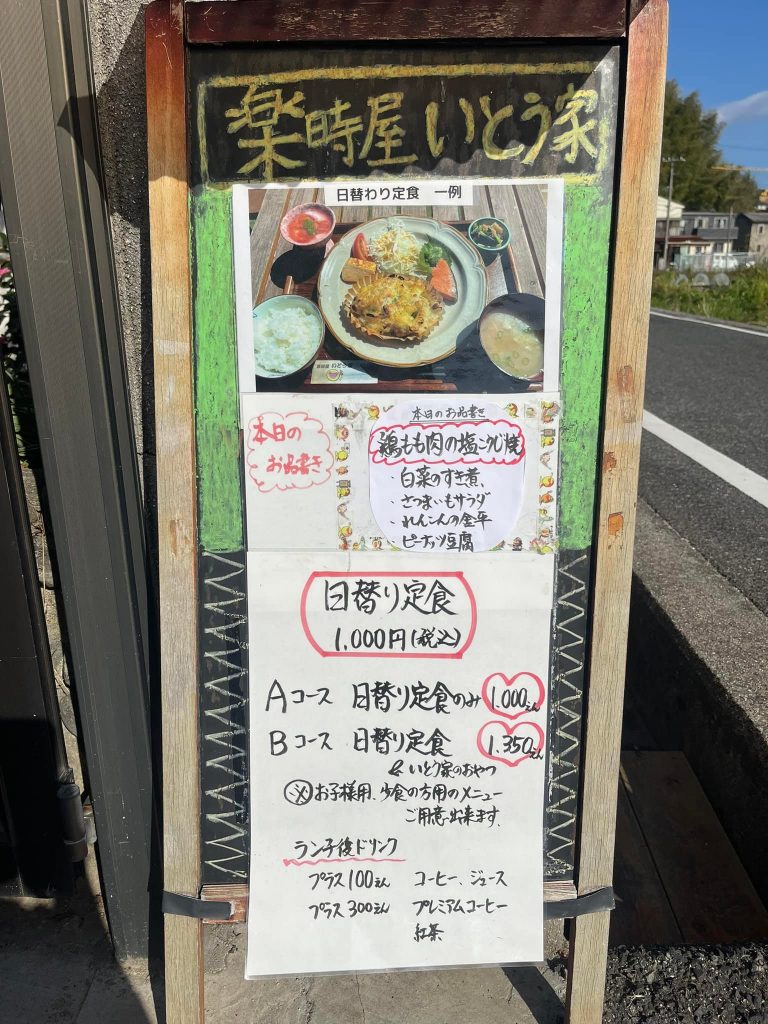 楽時屋 いとう家
日替わり定食 一例
本日の
お品書き
本日のお品書き
鶏もも肉の塩こうじ焼
・白菜のすき煮、
・さつまいもサラダ
・れんこんの金平
・ピーナッツ豆腐
日替り定食
1,000円(税込)
Aコース 日替り定食のみ 1.000えん
Bコース 日替り定食 1.350えん
& いとう家のおやつ
㋱お子様用、少食の方用のメニュー
ご用意出来ます。
ランチ後ドリンク
プラス100えん コーヒー、ジュース
プラス300えん プレミアムコーヒー
紅茶